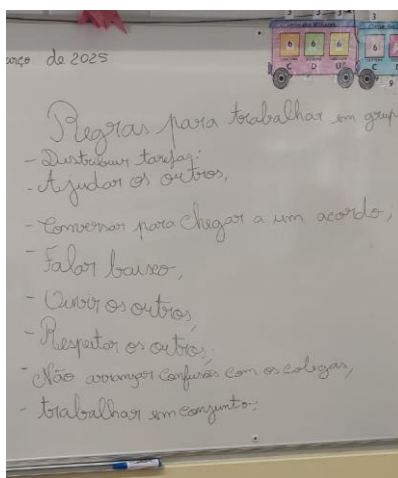 3
6 6 6 6
C D U C
9
março de 2025
Regras para trabalhar em grupo
- Distribuir tarefas;
- Ajudar os outros,
- Conversar para chegar a um acordo;
- Falar baixo,
- Ouvir os outros,
- Respeitar os outros;
- Não arranjar confusões com os colegas,
- trabalhar em conjunto;